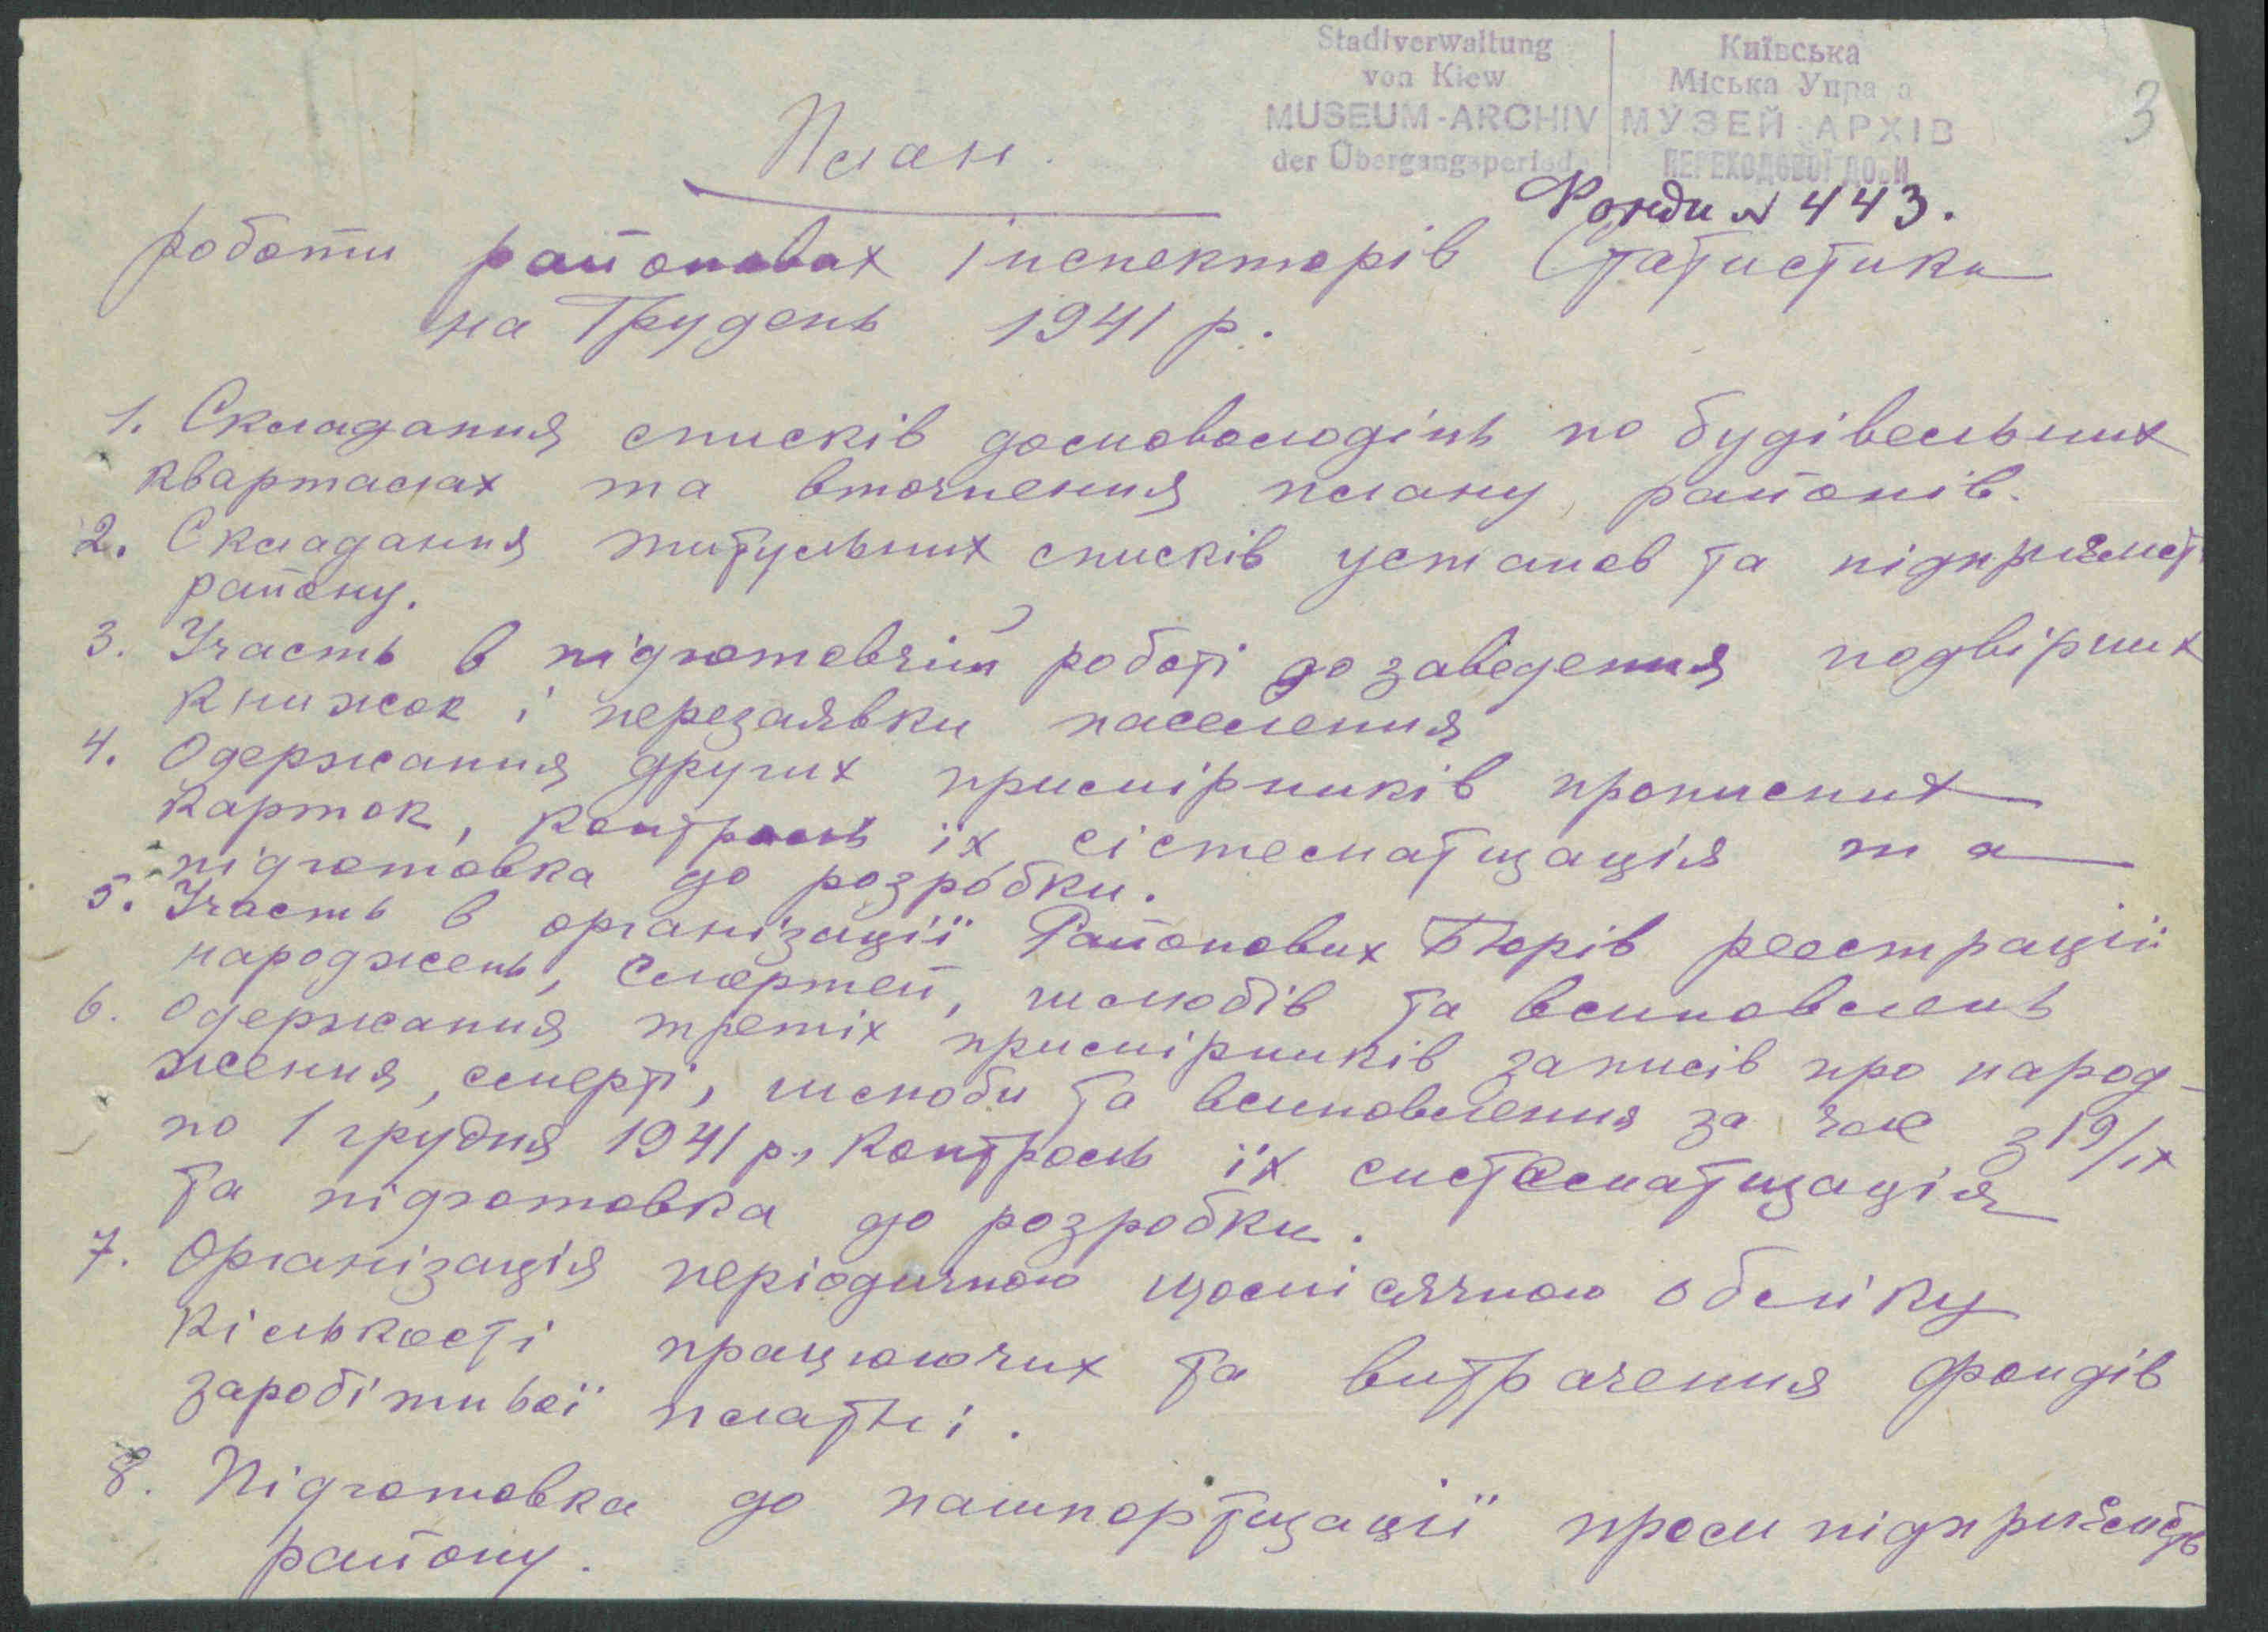 Stadtverwaltung
von Kiew
MUSEUM-ARCHIV
der Übergangsperiode
Київська
Міська Управа
МУЗЕЙ-АРХІВ
ПЕРЕХОДОВОЇ ДОБИ
3
Фонди № 443.
План.
роботи районових інспекторів Статистики
на Грудень 1941 р.
1. Складання списків домоволодінь по будівельних
кварталах та вточнення плану районів.
2. Складання титульних списків установ та підприємст
району.
3. Участь в підготовчій роботі до заведення подвірних
книжок і перезаявки населення
4. Одержання других примірників прописних
карток, контроль їх сістематизація та
підготовка до розробки.
5. Участь в організації Районових Бюрів реєстрації
народжень, смертей, шлюбів та всиновлень
6. Одержання третіх примірників записів про народ-
ження, смерті, шлюби та всиновлення за час з 19/IX
по 1 грудня 1941 р., контроль їх систематизація
та підготовка до розробки.
7. Організація періодичною щомісячною обліку
кількості працюючих та витрачення фондів
заробітньої платні.
8. Підготовка до пашпортизації пром підприємств
району.